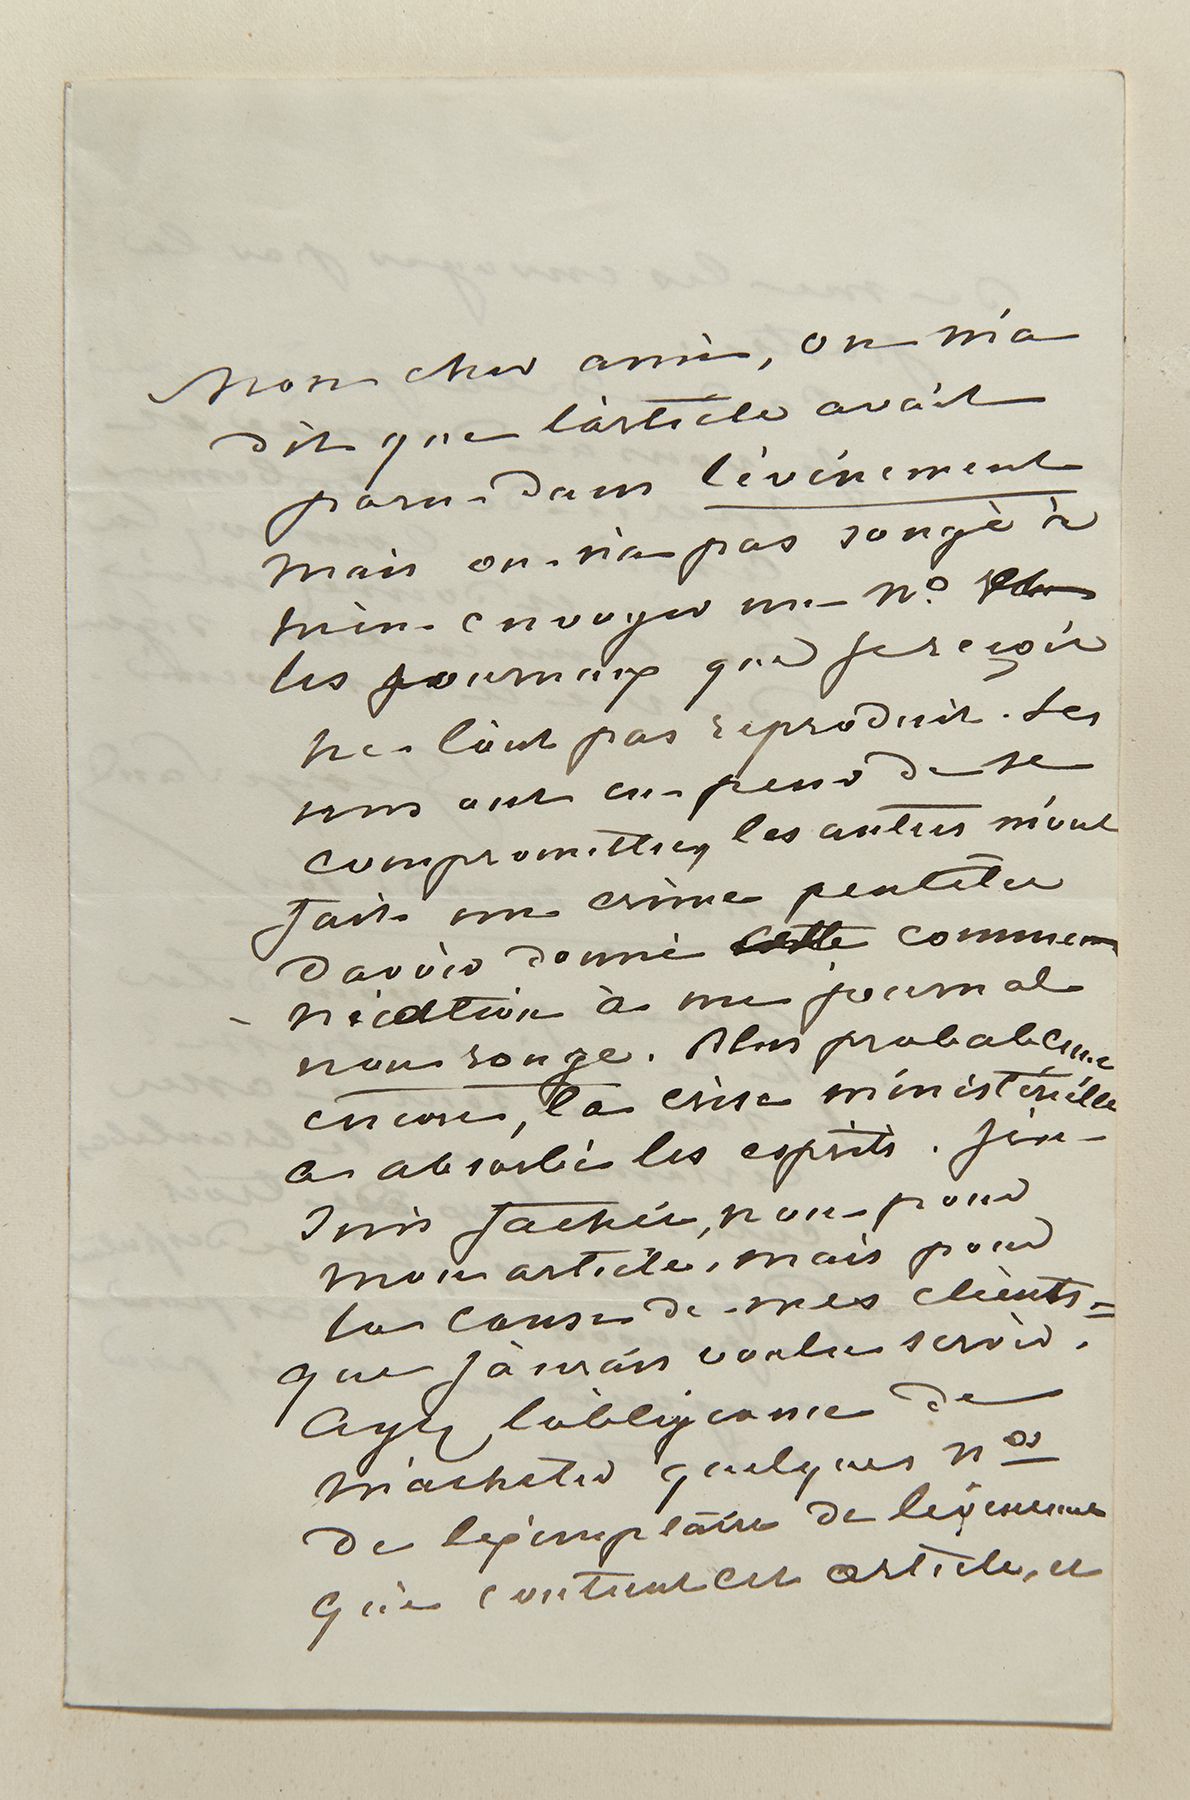 Mon cher ami, on m'a
dit que l'article avait
paru dans l'événement
mais on n'a pas songé à
m'en envoyer un n°.
les journaux que je reçois
ne l'ont pas reproduit. Les
uns ont eu peur de se
compromettre, les autres m'ont
fait un crime peutêtre
d'avoir donné cette commu
nication à un journal
non rouge. Plus probablement
encore, la crise ministérielle
a absorbé les esprits. J'en
suis fachée, non pour
mon article, mais pour
la cause de mes clients =
que j'aurais voulu servir.
Ayez l'obligeance de
m'acheter quelques nos
de l'exemplaire de l'événement
qui contient cet article, et